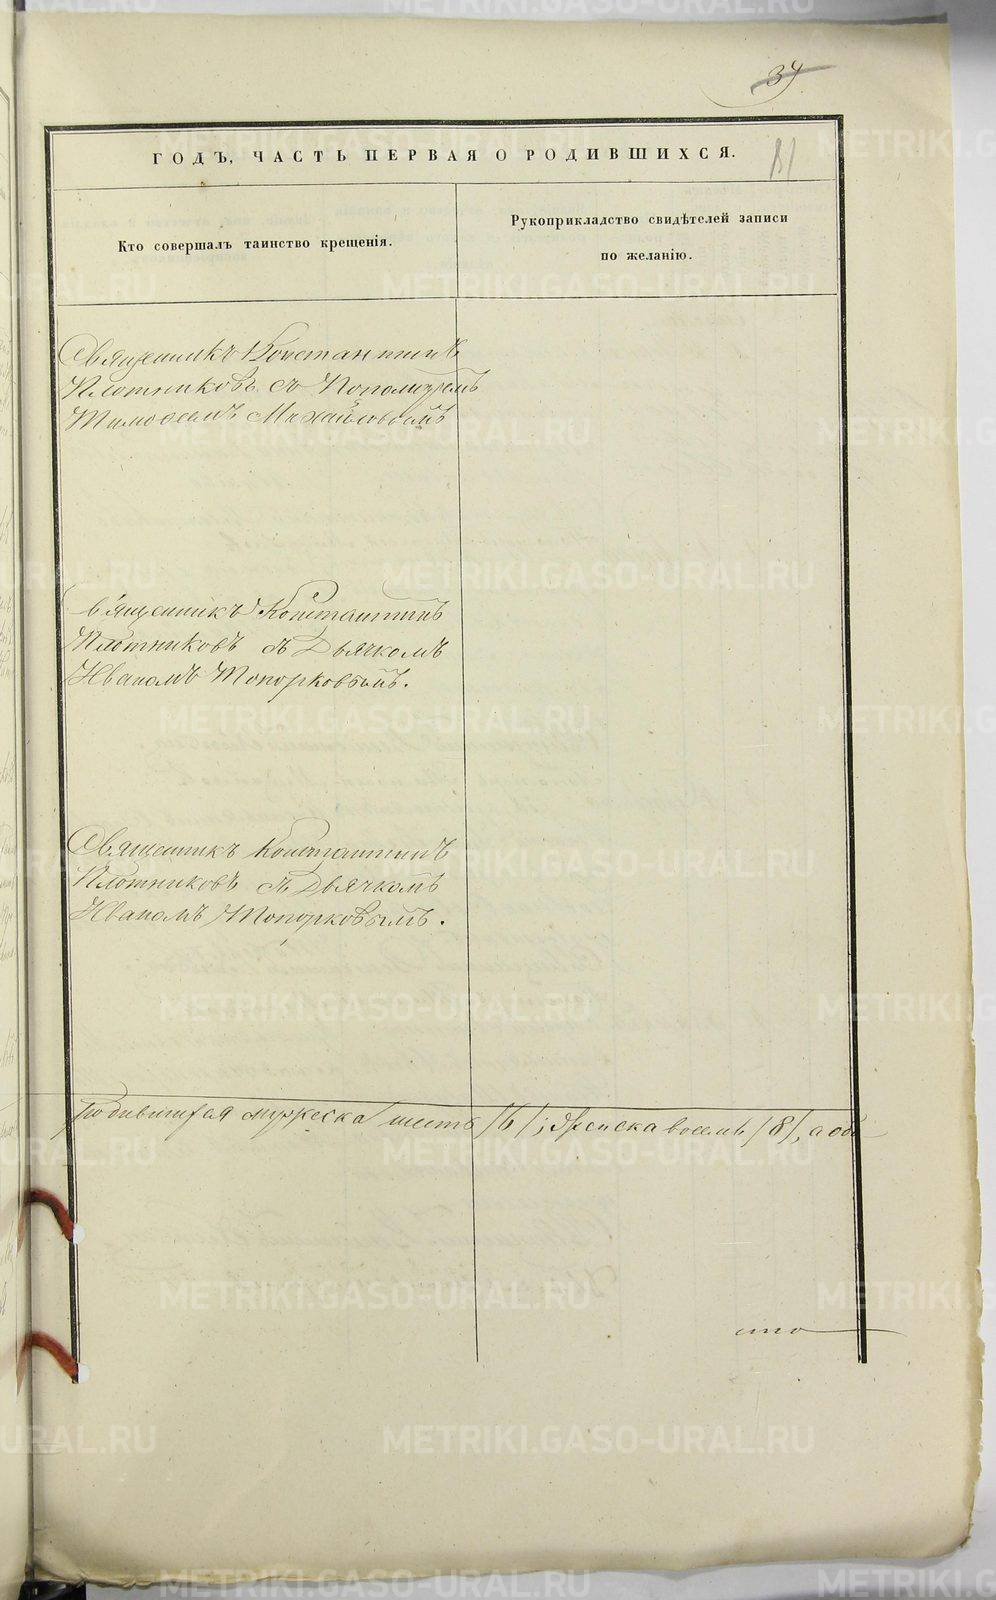 34
ГОДЪ, ЧАСТЬ ПЕРВАЯ О РОДИВШИХСЯ.
81
Кто совершалъ таинство крещенія.
Рукоприкладство свидѣтелей записи
по желанію.
Священникъ Константинъ
Плотниковъ съ Пономаремъ
Тимофеемъ Михайловымъ
Священникъ Константинъ
Плотниковъ съ Дьячкомъ
Иваномъ Топорковымъ.
Священникъ Константинъ
Плотниковъ съ Дьячкомъ
Иваномъ Топорковымъ.
родившихся мужеска шесть /6/, женска восемь /8/, а обо
его
METRIKI.GASO-URAL.RU